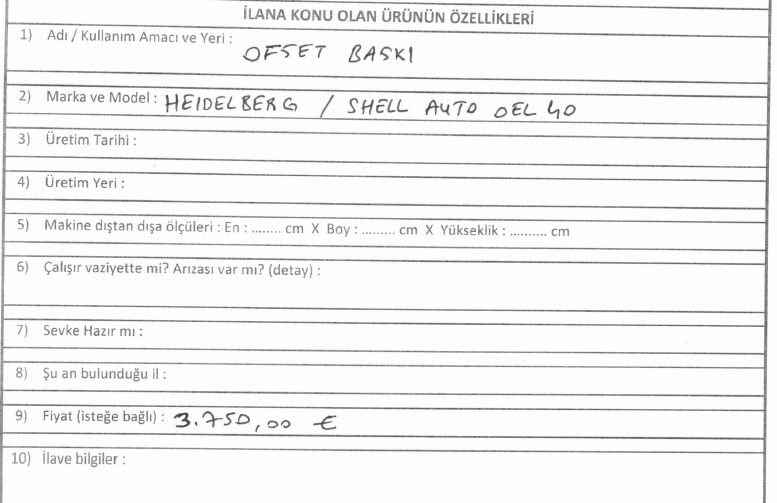 İLANA KONU OLAN ÜRÜNÜN ÖZELLİKLERİ
1) Adı / Kullanım Amacı ve Yeri : OFSET BASKI
2) Marka ve Model : HEIDELBERG / SHELL AUTO OEL 40
3) Üretim Tarihi :
4) Üretim Yeri :
5) Makine dıştan dışa ölçüleri : En : ........ cm X Boy : ......... cm X Yükseklik : .......... cm
6) Çalışır vaziyette mi? Arızası var mı? (detay) :
7) Sevke Hazır mı :
8) Şu an bulunduğu il :
9) Fiyat (isteğe bağlı) : 3.750,00 €
10) İlave bilgiler :